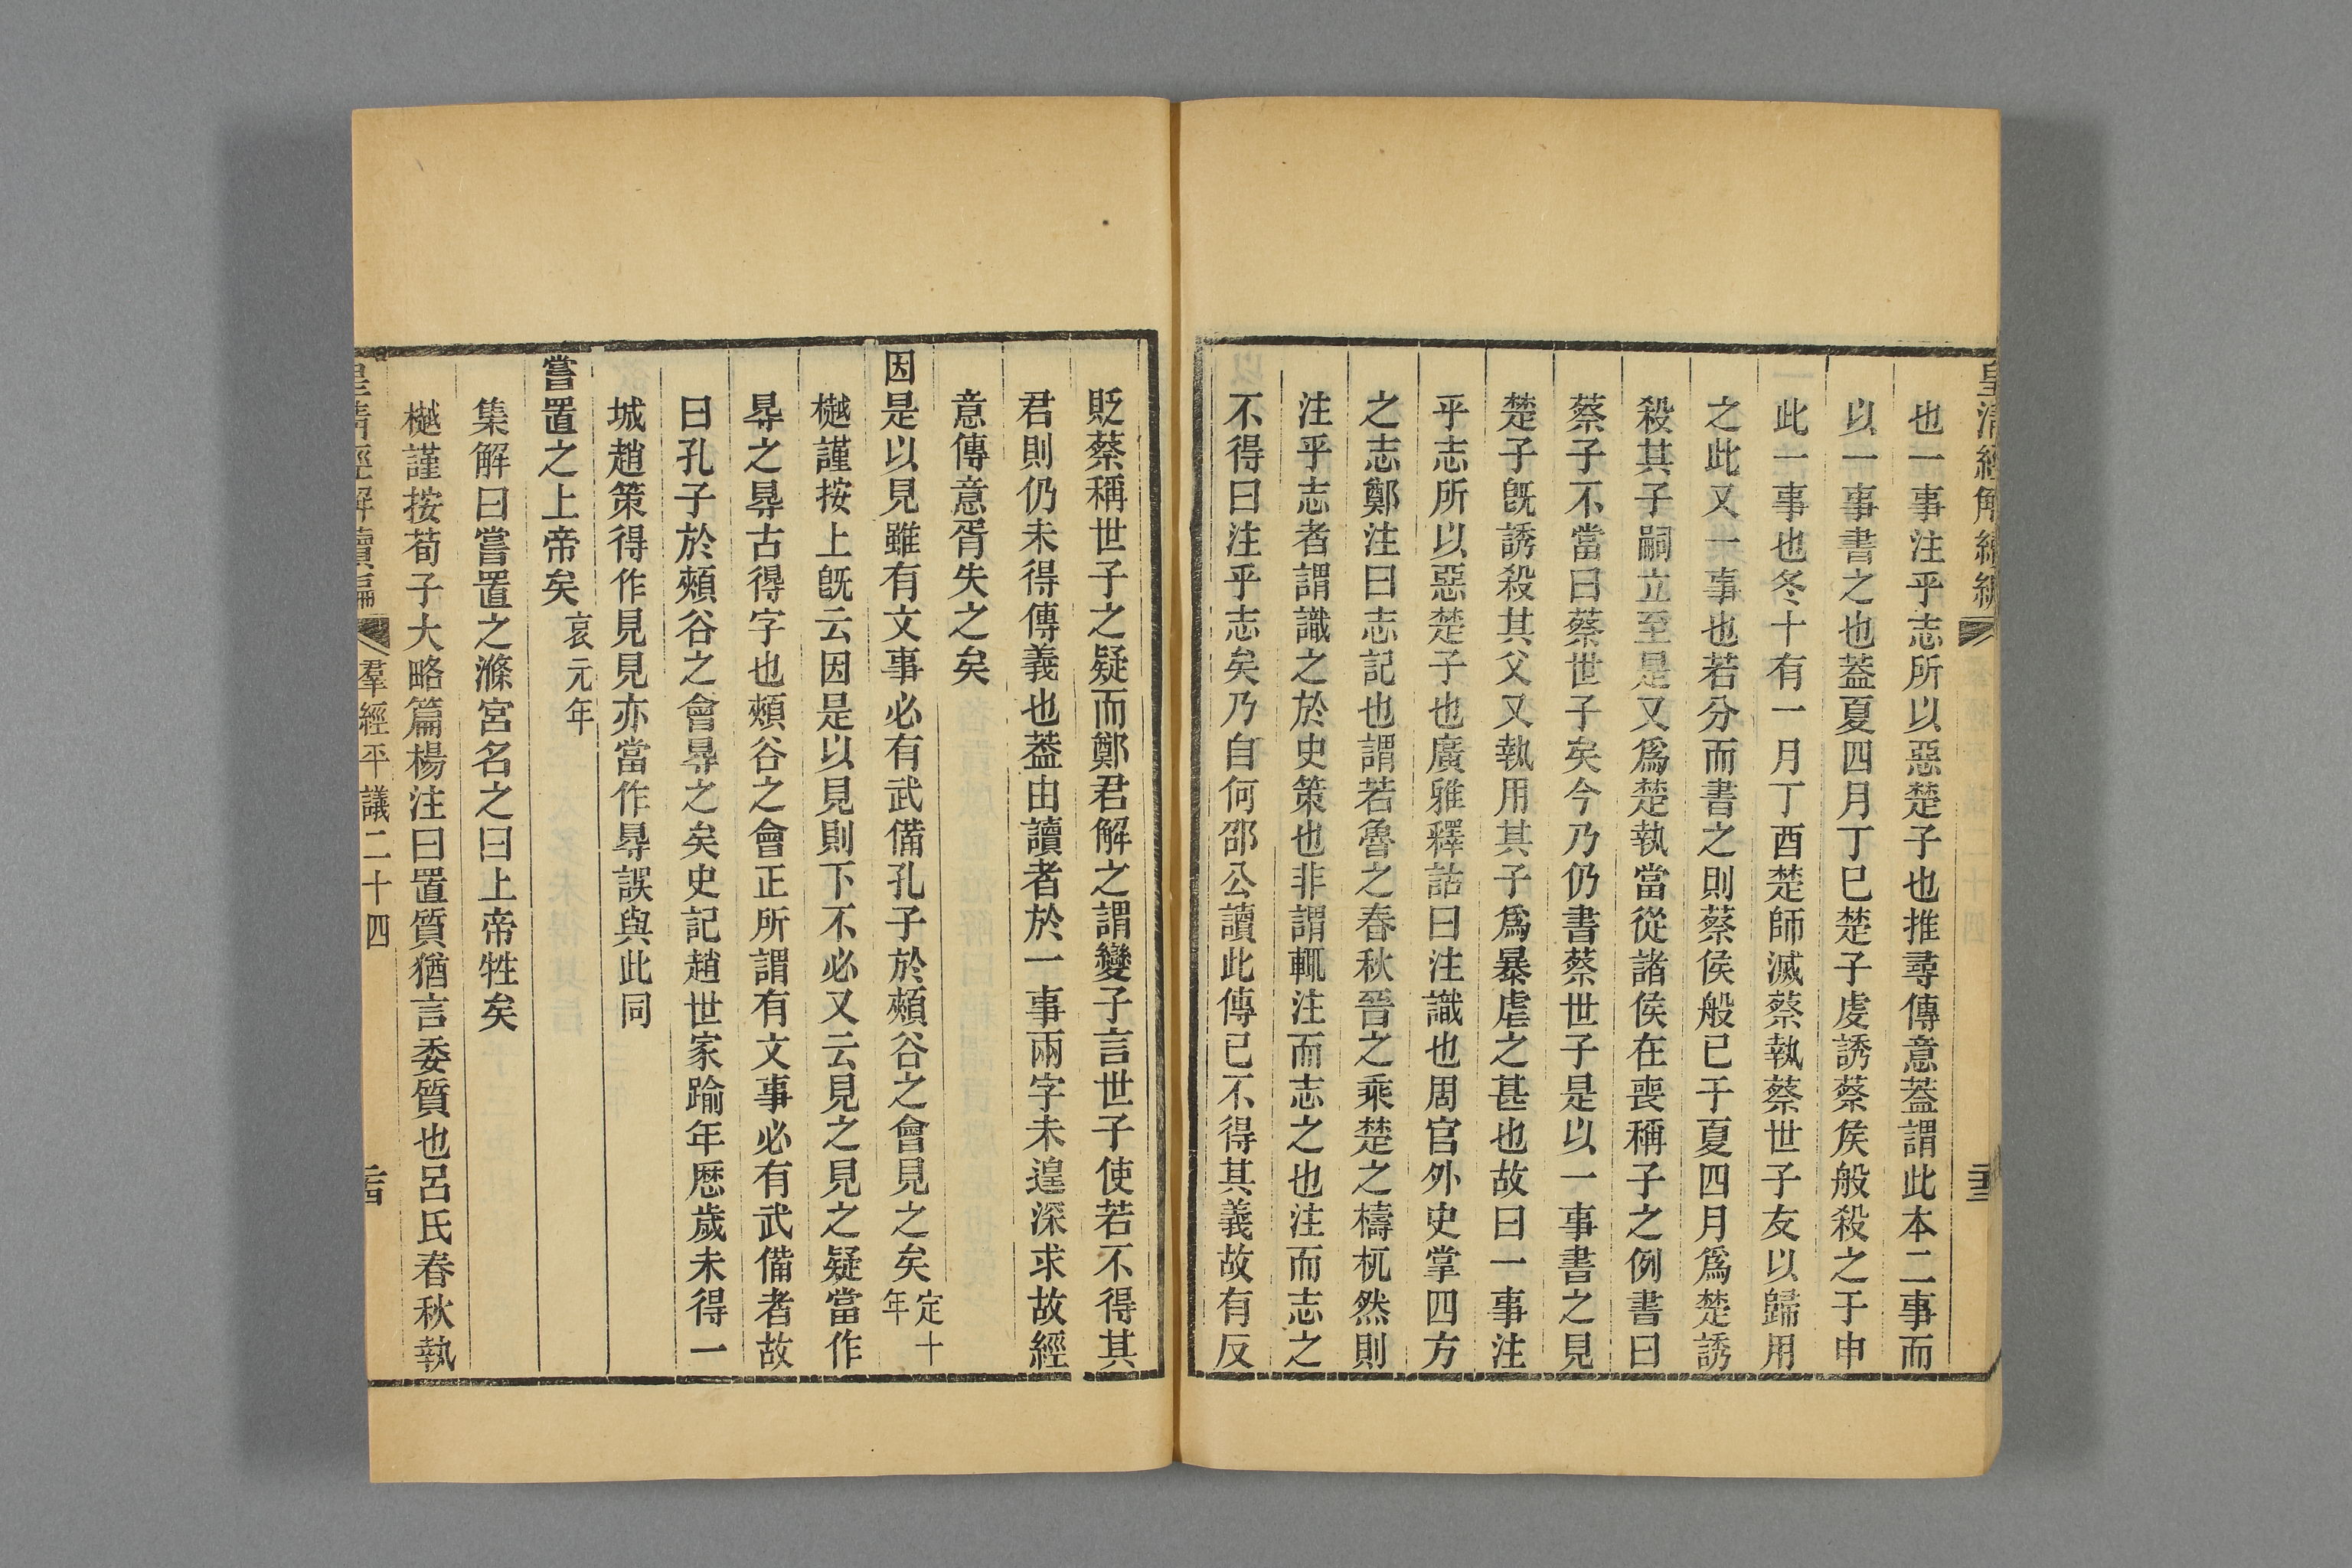 皇清經解續編
三
也一事注乎志所以惡楚子也推尋傳意蓋謂此本二事而
以一事書之也蓋夏四月丁巳楚子虔誘蔡矦般殺之于申
此一事也冬十有一月丁酉楚師滅蔡執蔡世子友以歸用
之此又一事也若分而書之則蔡侯般已于夏四月爲楚誘
殺其子嗣立至是又爲楚執當從諸侯在喪稱子之例書曰
蔡子不當曰蔡世子矣今乃仍書蔡世子是以一事書之見
楚子旣誘殺其父又執用其子爲暴虐之甚也故曰一事注
乎志所以惡楚子也廣雅釋詁曰注識也周官外史掌四方
之志鄭注曰志記也謂若魯之春秋晉之乘楚之檮杌然則
注乎志者謂識之於史策也非謂輒注而志之也注而志之
不得曰注乎志矣乃自何邵公讀此傳已不得其義故有反
貶蔡稱世子之疑而鄭君解之謂變子言世子使若不得其
君則仍未得傳義也葢由讀者於一事兩字未遑深求故經
意傳意胥失之矣
因是以見雖有文事必有武備孔子於頰谷之會見之矣定十年
樾謹按上旣云因是以見則下不必又云見之見之疑當作
㝵之㝵古得字也頰谷之會正所謂有文事必有武備者故
曰孔子於頰谷之會㝵之矣史記趙世家踰年歷歲未得一
城趙策得作見見亦當作㝵誤與此同
嘗置之上帝矣哀元年
集解曰嘗置之滌宮名之曰上帝牲矣
樾謹按荀子大略篇楊注曰置質猶言委質也呂氏春秋執
皇清經解續編
羣經平議二十四